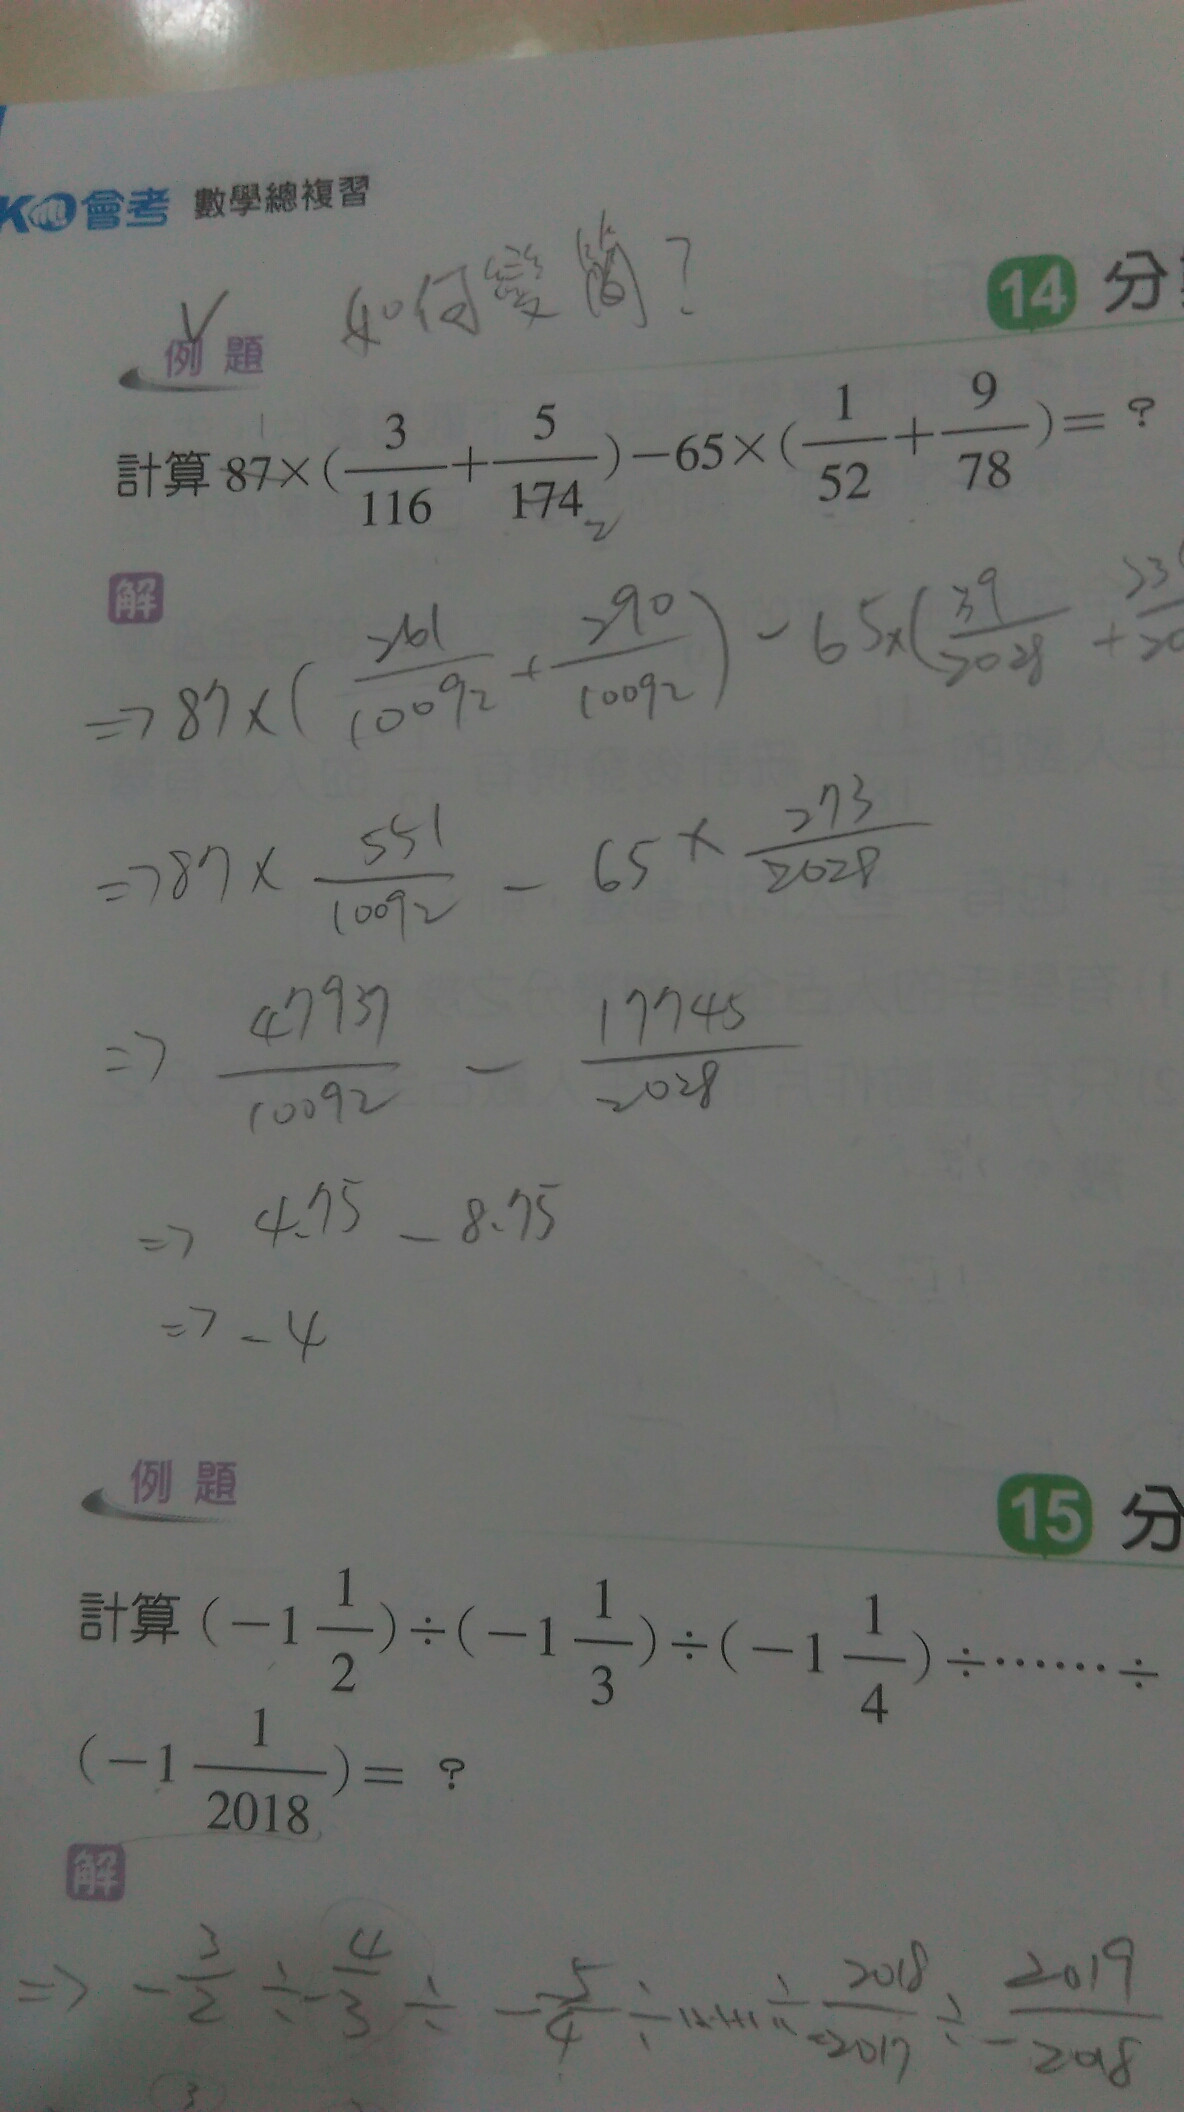 KO會考 數學總複習
V 如何變簡?
例題 14 分
計算 87×(3/116+5/174)−65×(1/52+9/78)=?
2
解
=> 87×(261/10092+290/10092)-65×(39/2028+
=> 87×551/10092-65×273/2028
=> 47937/10092-17745/2028
=> 4.75-8.75
=> -4
例題 15 分
計算(−1 1/2)÷(−1 1/3)÷(−1 1/4)÷……÷
(−1 1/2018)=?
解
=> -3/2÷-4/3÷-5/4÷……÷2018/-2017÷-2019/2018
3